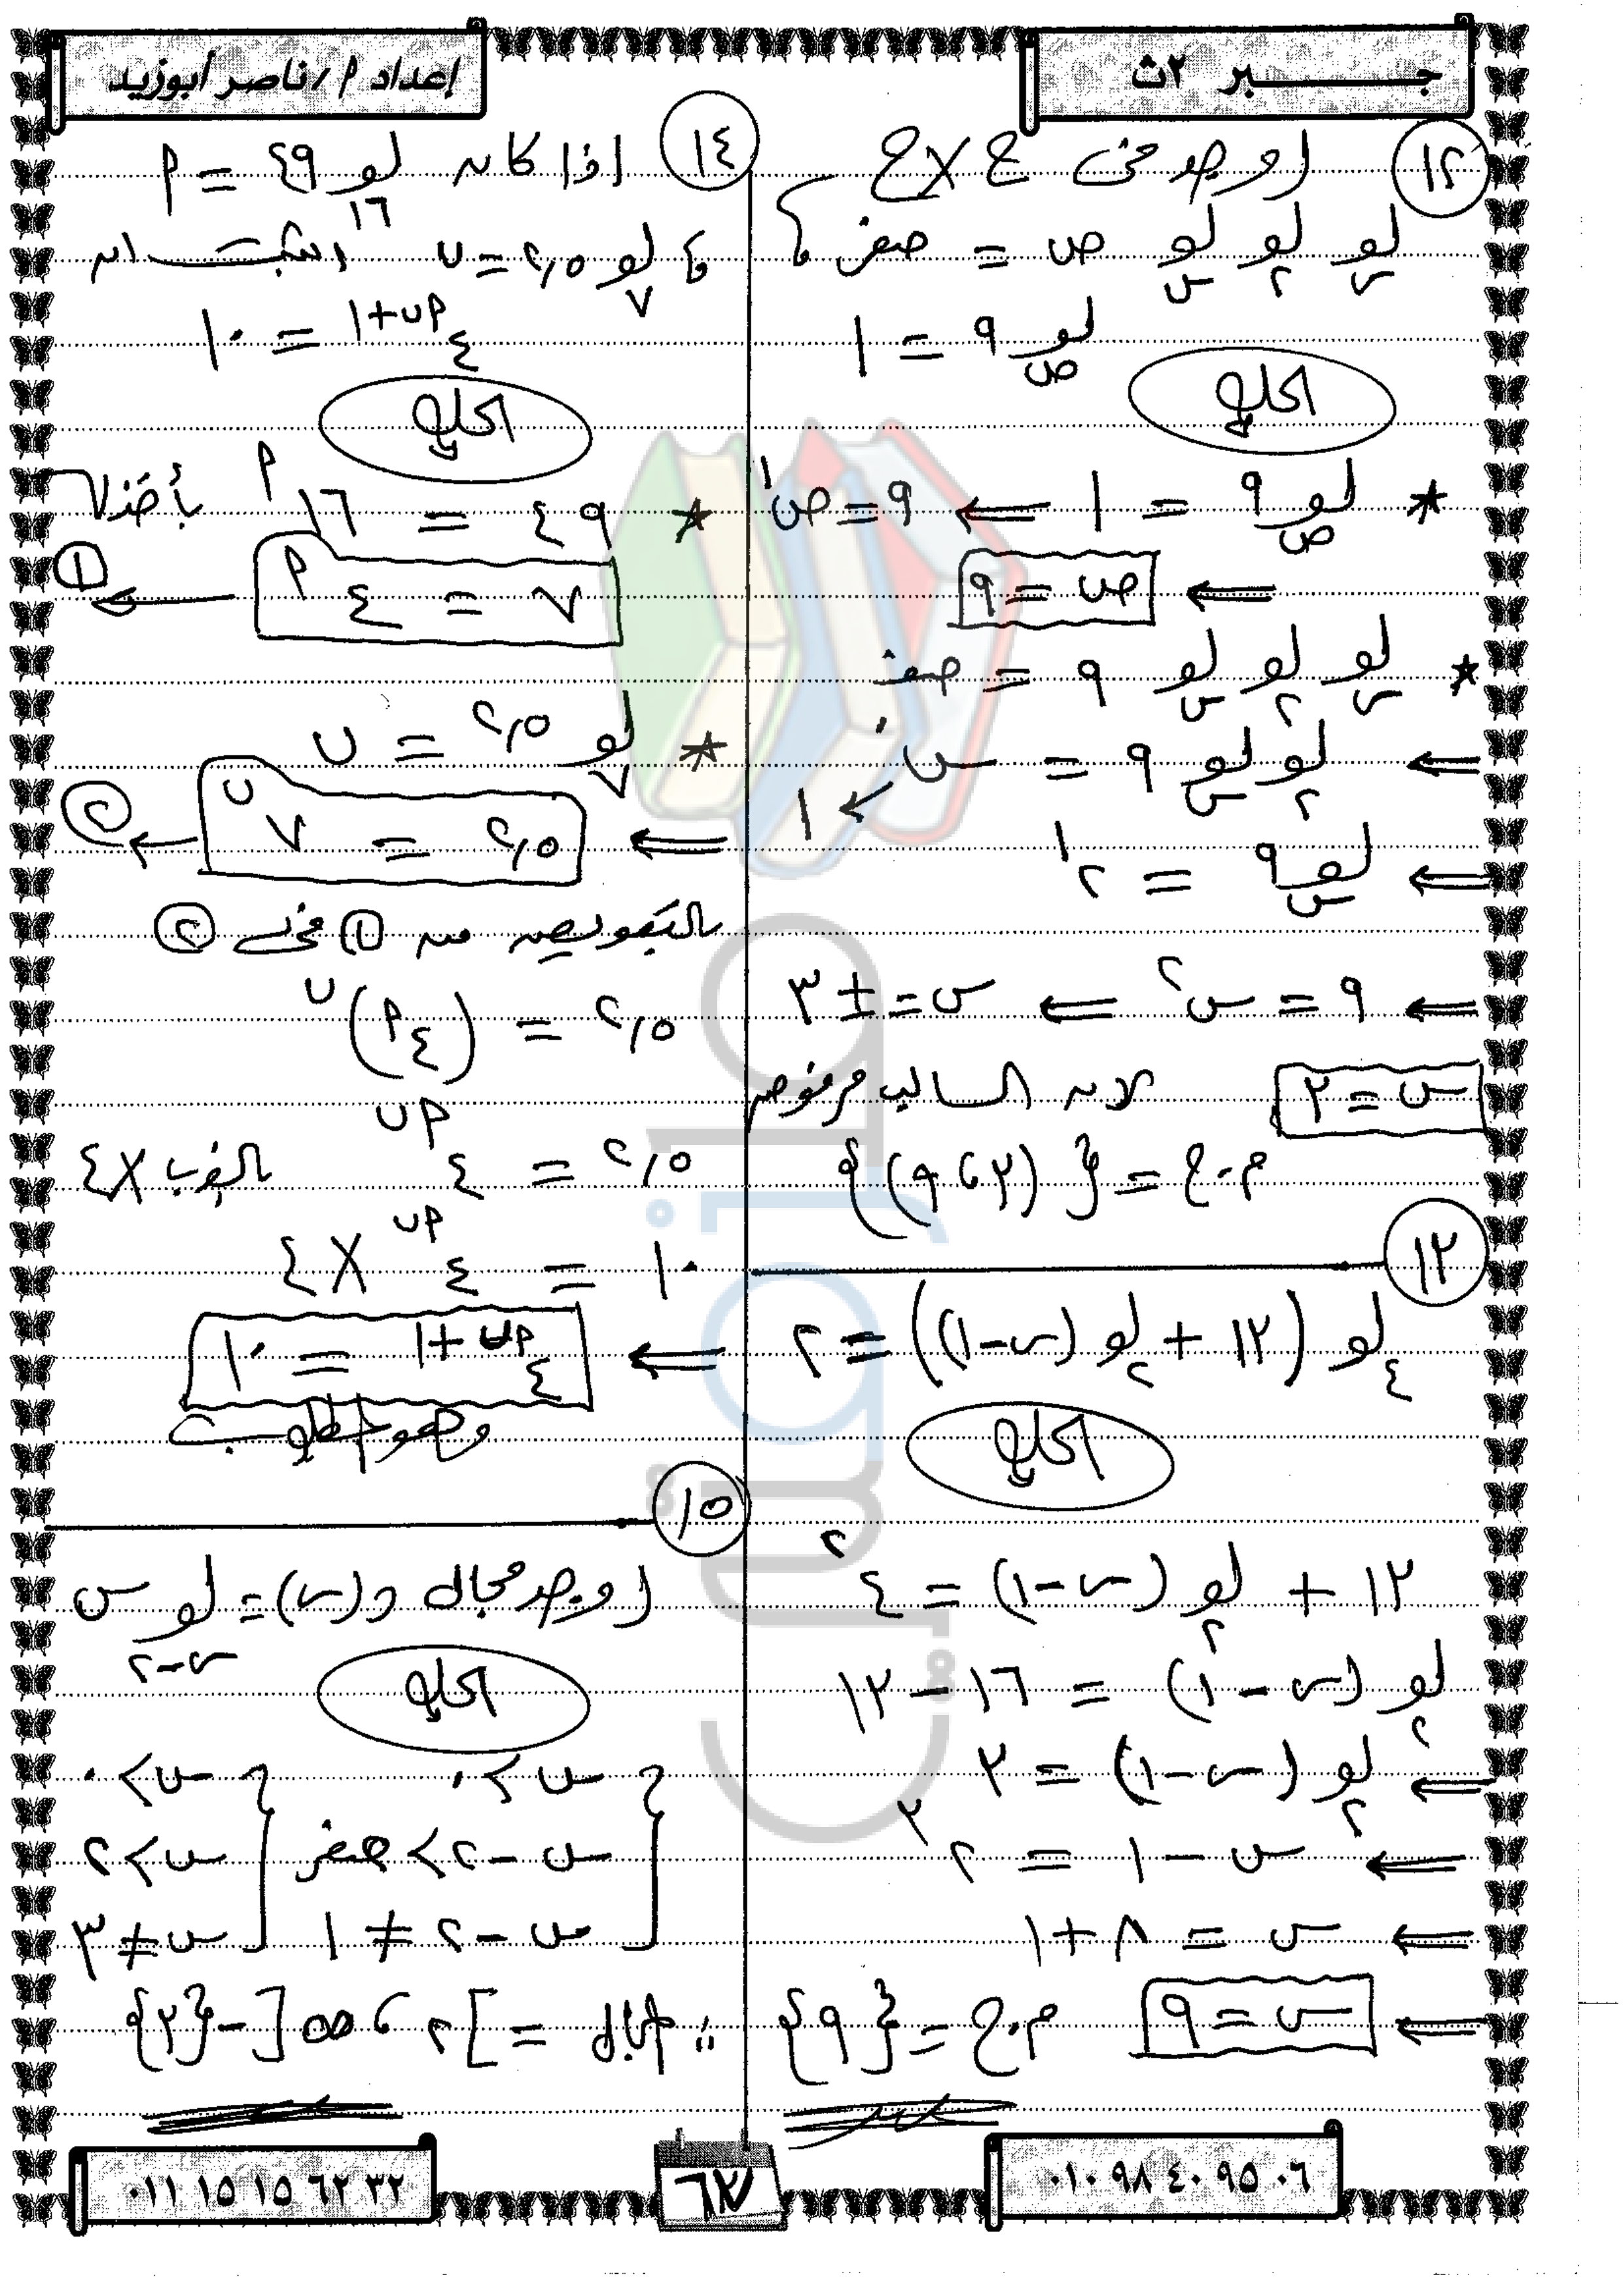 جبر ٢ث
إعداد م/ ناصر أبوزيد
١٢
أوجد فى ح × ح
{ لو_س لو_٢ لو_س ص = صفر ،
لو_ص ٩ = ١
الحل
* لو_ص ٩ = ١ ⇐ ٩ = ص^١
⇐ ص = ٩
* لو_س لو_٢ لو_س ٩ = صفر
⇐ لو_٢ لو_س ٩ = س^٠ → ١
⇐ لو_س ٩ = ٢^١
⇐ ٩ = س^٢ ⇐ س = ± ٣
س = ٣ لأن السالب مرفوض
م.ح = {(٣ ، ٩)}
١٣
لو_٤ (١٣ + لو_٢ (س-١)) = ٢
الحل
١٣ + لو_٢ (س-١) = ٤^٢
لو_٢ (س - ١) = ١٦ - ١٣
⇐ لو_٢ (س-١) = ٣
⇐ س - ١ = ٢^٣
⇐ س = ٨ + ١
⇐ س = ٩ م.ح = {٩}
١٤
اذا كان لو_١٦ ٤٩ = م
، لو_٧ ٢,٥ = ن اثبت ان
٤^(م ن + ١) = ١٠
الحل
* ٤٩ = ١٦^م بأخذ √
٧ = ٤^م ← ①
* لو_٧ ٢,٥ = ن
⇐ ٢,٥ = ٧^ن ← ②
بالتعويض من ① فى ②
٢,٥ = (٤^م)^ن
٢,٥ = ٤^(م ن) بالضرب × ٤
١٠ = ٤^(م ن) × ٤
⇐ ٤^(م ن + ١) = ١٠
وهو المطلوب
١٥
أوجد مجال د(س) = لو_(س-٢) س
الحل
س > ٠ } س > ٠
س - ٢ > صفر } س > ٢
س - ٢ ≠ ١ } س ≠ ٣
∴ المجال = ]٢ ، ∞[ - {٣}
٠١٠ ٩٨ ٤٠ ٩٥ ٠٦
٦٣
٠١١ ١٥ ١٥ ٦٢ ٣٢